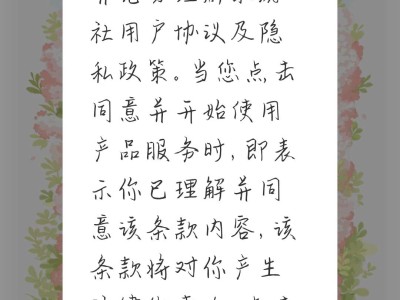 社用户协议及隐
私政策。当您点击
同意并开始使用
产品服务时,即表
示你已理解并同
意该条款内容,该
条款将对你产生